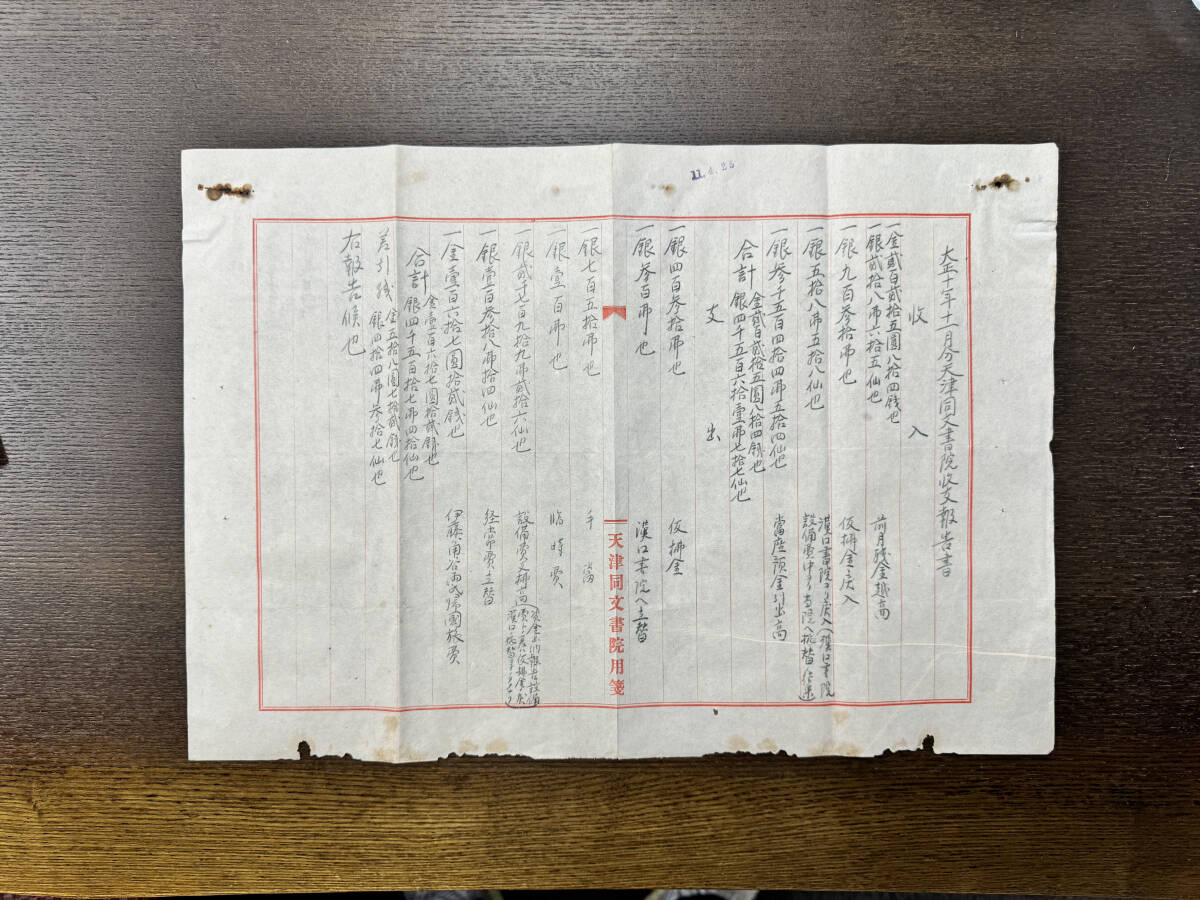 大正十年十一月分天津同文書院收支報告書
收入
一金貳百貳拾五圓八拾四錢也
一銀貳拾八弗六拾五仙也 前月殘金越高
一銀九百參拾弗也 仮拂金戻入
一銀五拾八弗五拾八仙也 漢口書院ヨリ戻入(漢口書院
設備費中ヨリ當院ヘ振替
一銀參千五百四拾四弗五拾四仙也 當座預金引出高
合計 金貳百貳拾五圓八拾四錢也
銀四千五百六拾壹弗七拾七仙也
支出
一銀四百參拾弗也 仮拂金
一銀參百弗也 漢口書院ヘ立替
天津同文書院用箋
一銀七百五拾弗也 手當
一銀壹百弗也 臨時費
一銀貳千七百九拾九弗貳拾六仙也 設備費支拂高
一銀壹百參拾八弗拾四仙也 経常費立替
一金壹百六拾七圓拾貳錢也 伊藤角谷両氏帰國旅費
合計 金壹百六拾七圓拾貳錢也
銀四千五百拾七弗四拾仙也
差引残 金五拾八圓七拾貳錢也
銀四拾四弗參拾七仙也
右報告候也